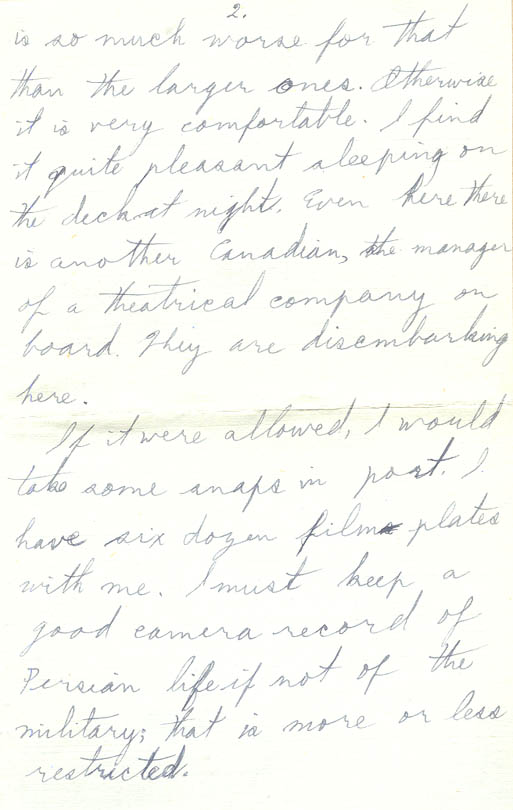 2.
is so much worse for that
than the larger ones. Otherwise
it is very comfortable. I find
it quite pleasant sleeping on
the deck at night. Even here there
is another Canadian, the manager
of a theatrical company on
board. They are disembarking
here.
If it were allowed, I would
take some snaps in port. I
have six dozen film plates
with me. I must keep a
good camera record of
Persian life if not of the
military; that is more or less
restricted.